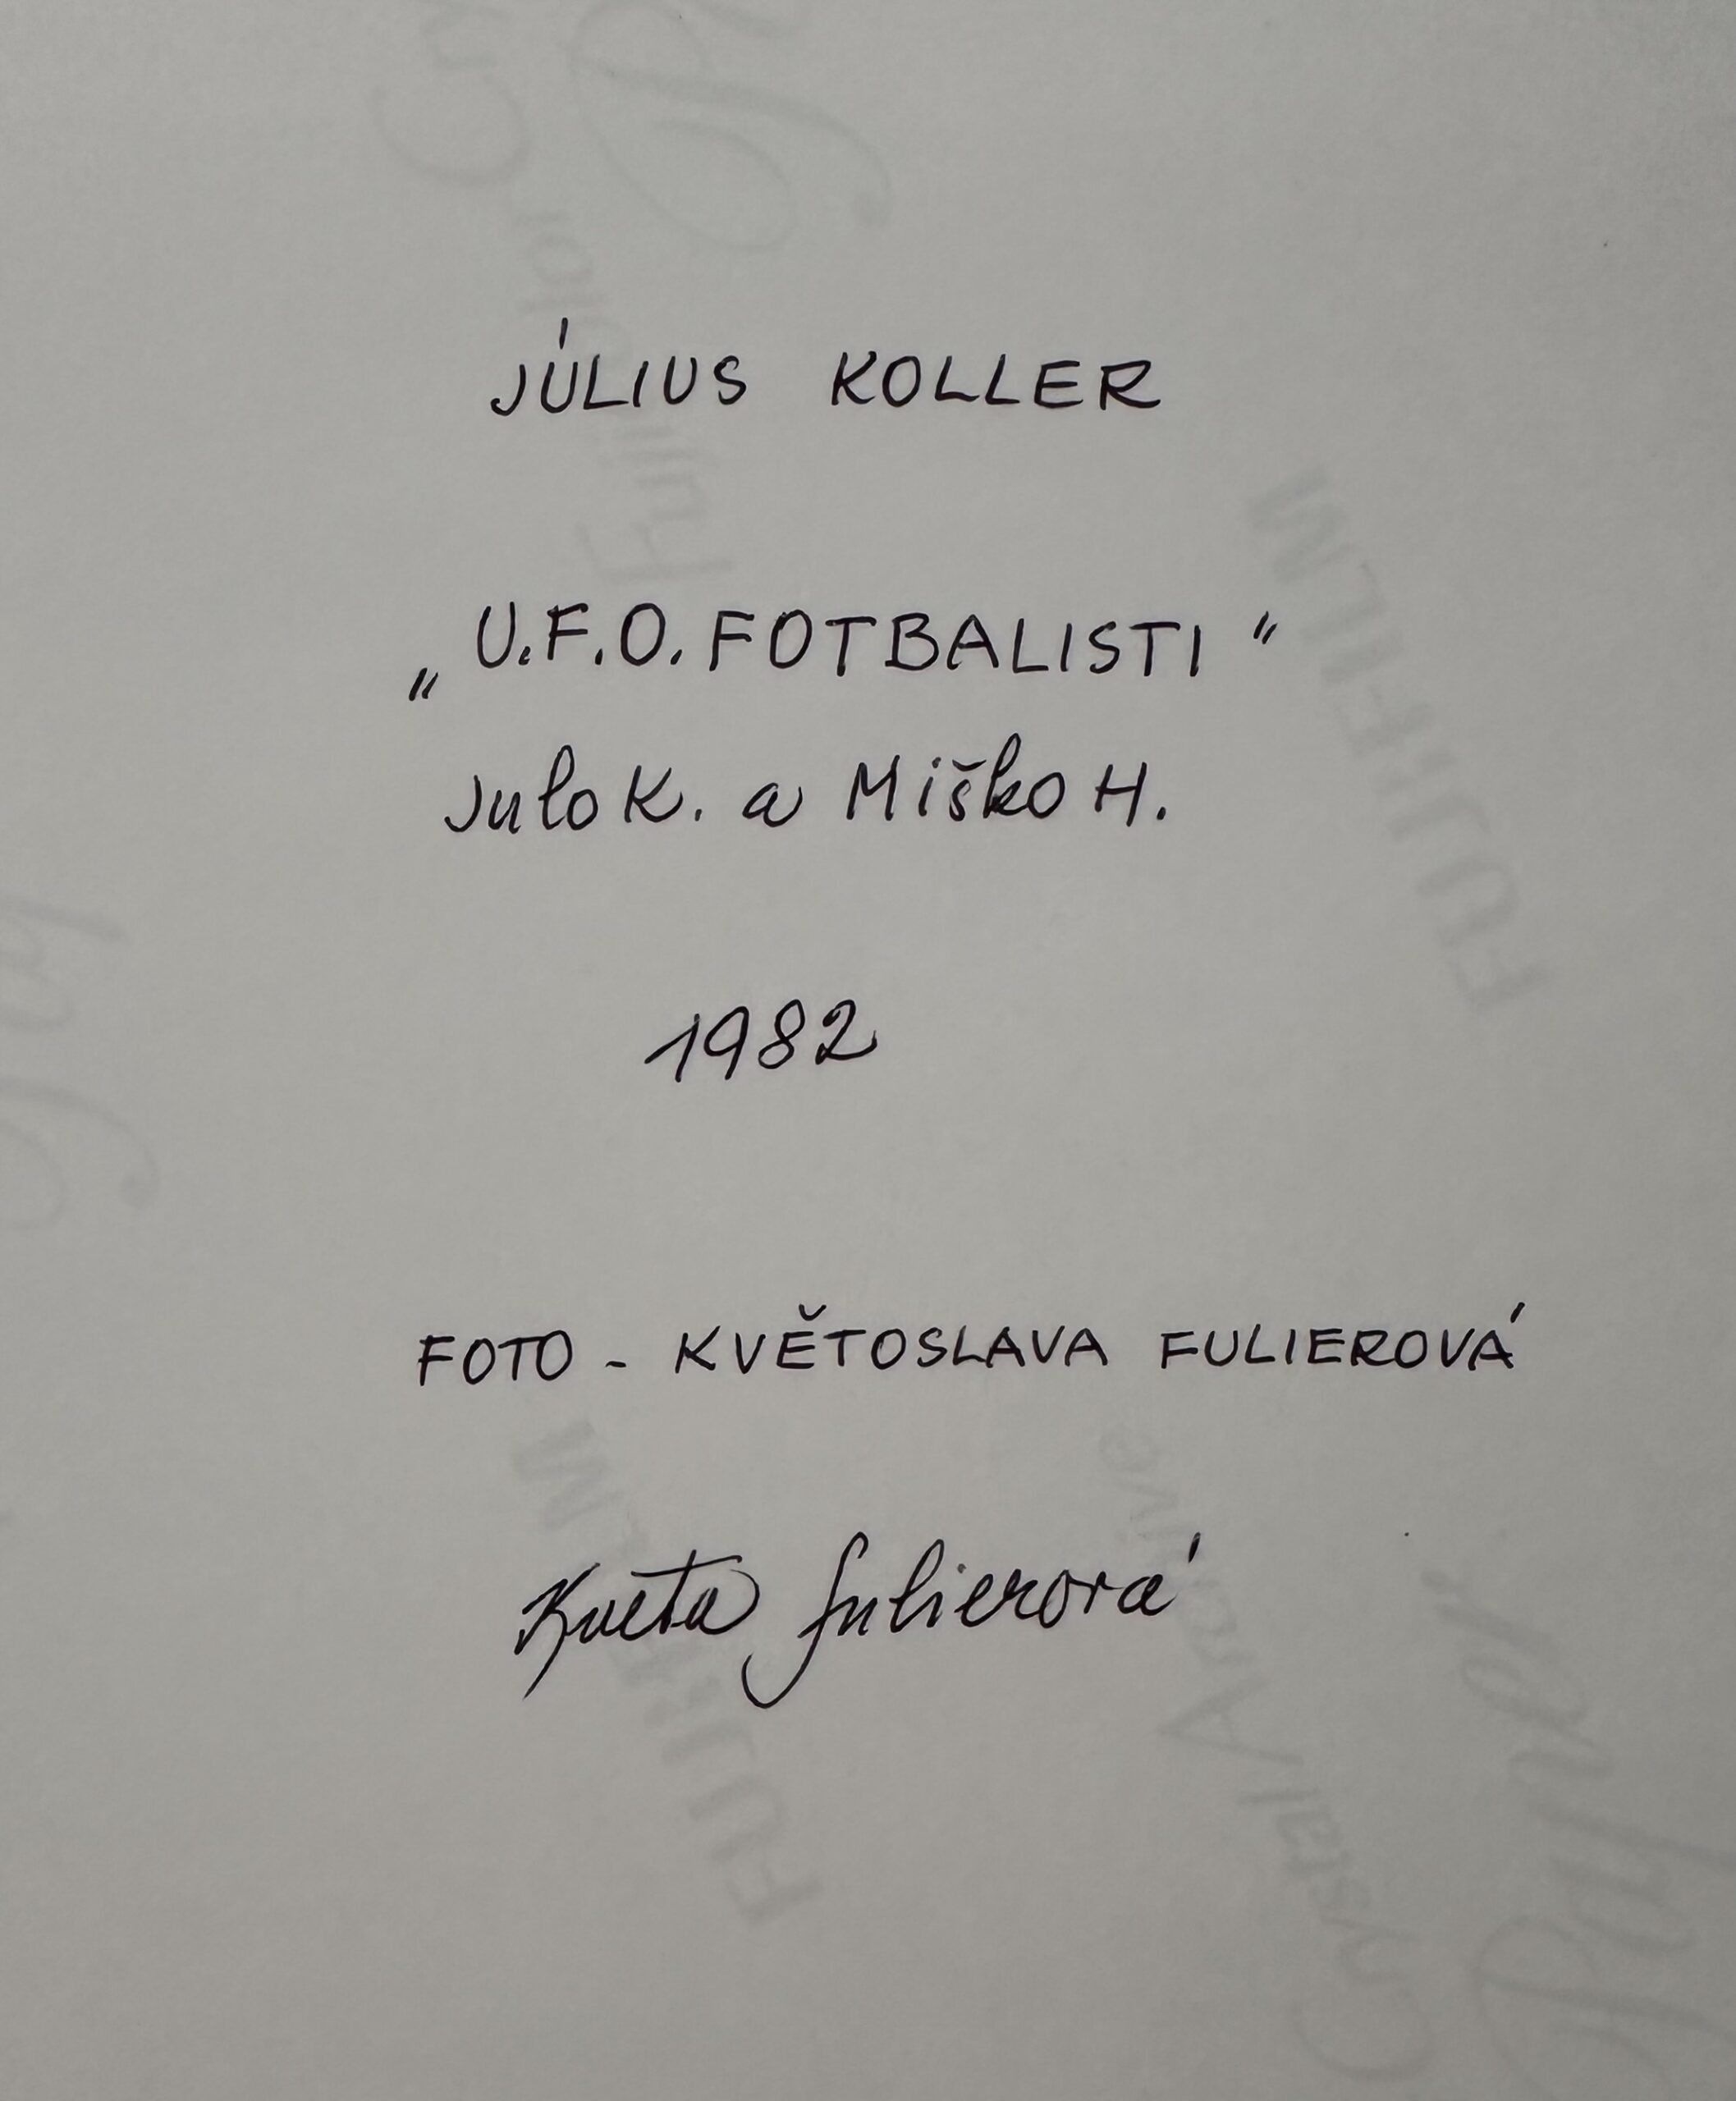 JÚLIUS KOLLER
„U.F.O. FOTBALISTI"
Julo K. a Miško H.
1982
FOTO - KVĚTOSLAVA FULIEROVÁ
Kveta Fulierová
FUJIFILM